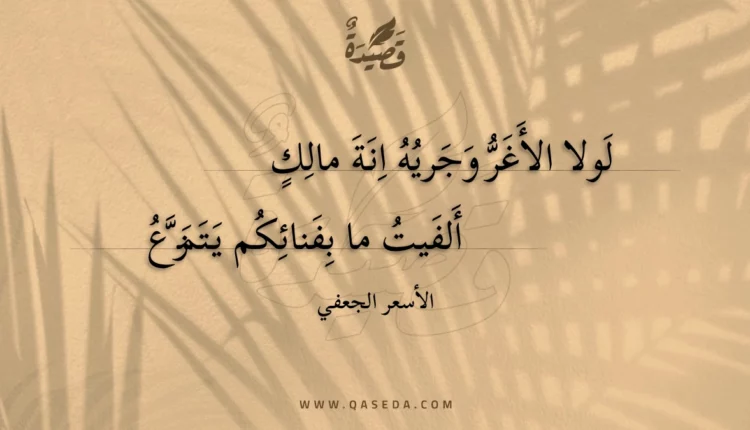 قَصِيدَةٌ
لَولا الأَغَرُّ وَجَريُهُ اِنَةَ مالِكٍ
أَلفَيتُ ما بِفَنائِكُم يَتَمَزَّعُ
الأسعر الجعفي
WWW.QASEDA.COM